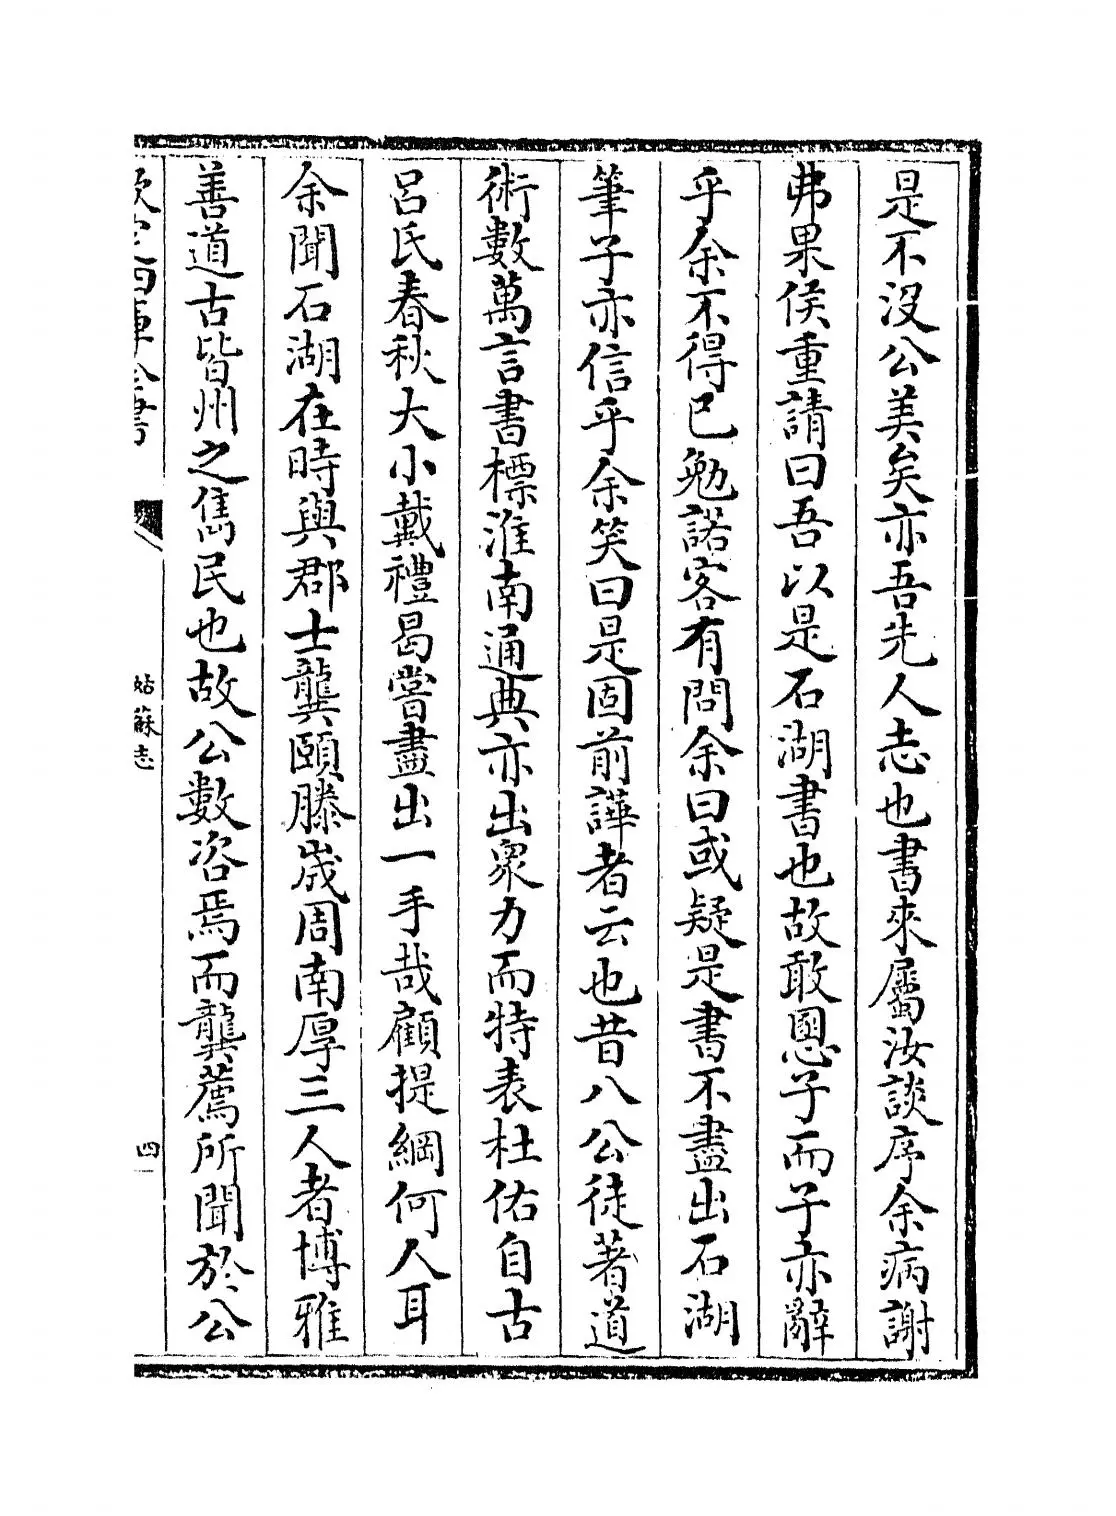 是不没公美矣亦吾先人志也書來屬汝談序余病謝
弗果侯重請曰吾以是石湖書也故敢慁子而子亦辭
乎余不得已勉諾客有問余曰或疑是書不盡出石湖
筆子亦信乎余笑曰是固前譁者云也昔八公徒著道
術數萬言書標淮南通典亦出衆力而特表杜佑自古
吕氏春秋大小戴禮曷嘗盡出一手哉顧提綱何人耳
余聞石湖在時與郡士龔頤滕宬周南厚三人者博雅
善道古皆州之雋民也故公數咨焉而龔薦所聞於公
欽定四庫全書
姑蘇志
四